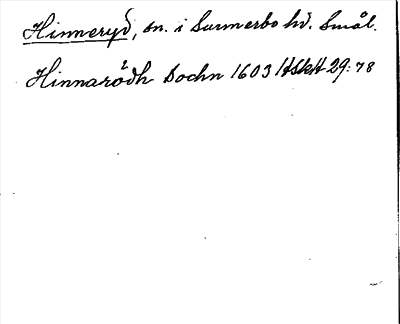 Hinneryd, sn. i Sunnerbo hd. Smål.
Hinnarödh Sochn 1603 HSkH 29:78